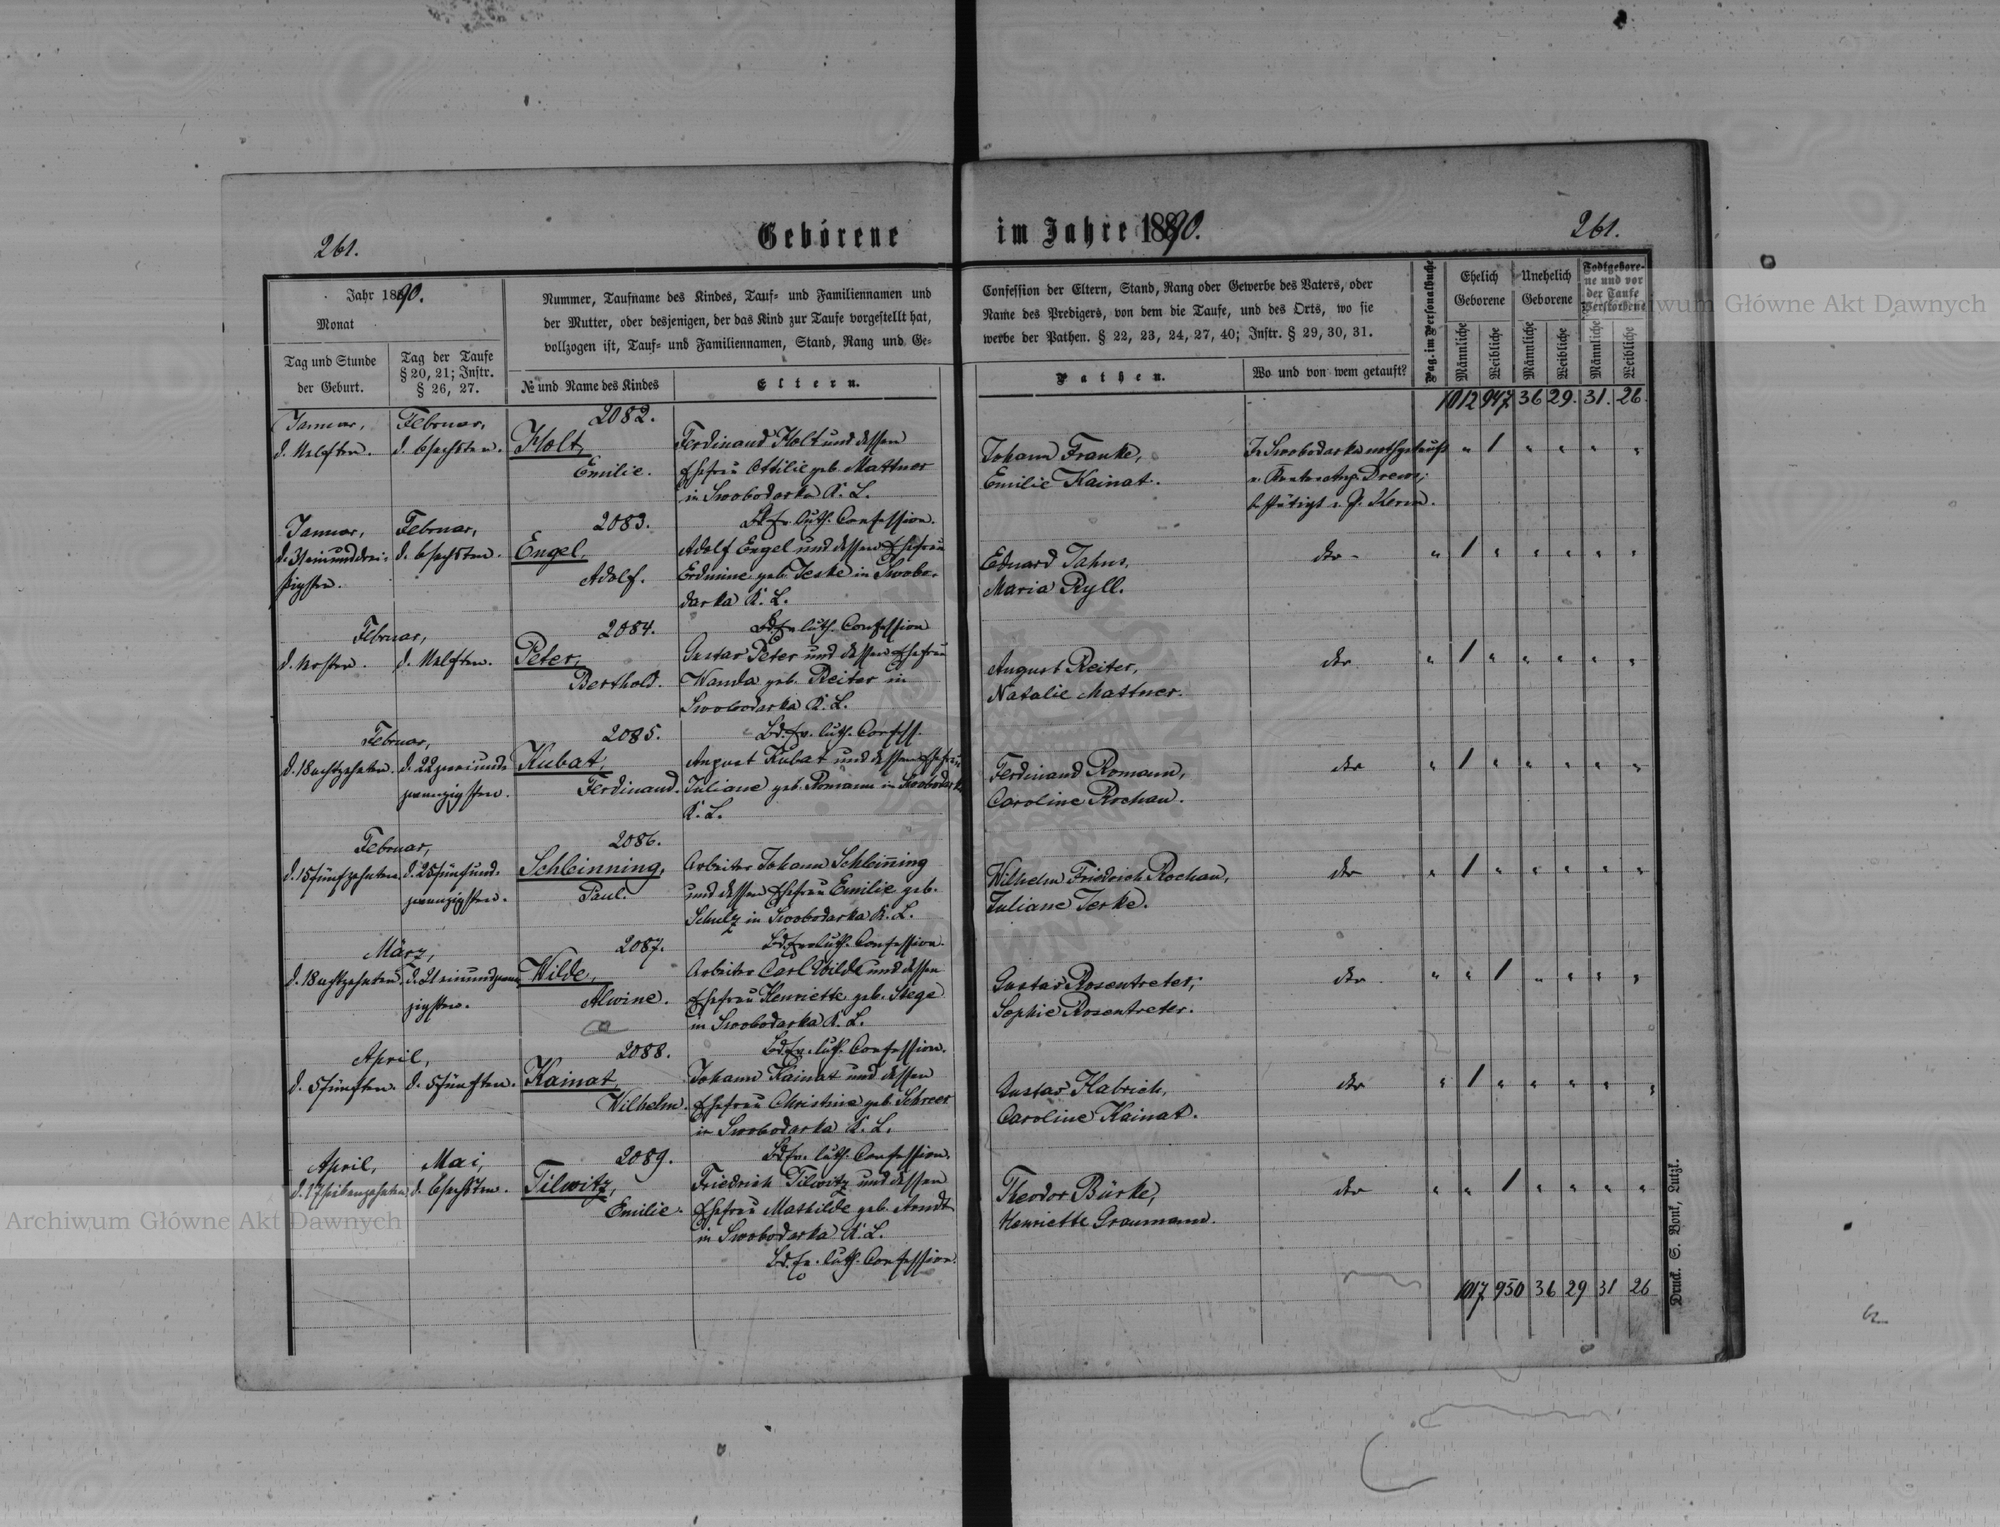 Geborene
im Jahre 1890.
261.
261.
Jahr 1890.
Monat
Tag und Stunde
der Geburt.
Tag der Taufe
§ 20, 21; Instr.
§ 26, 27.
Nummer, Taufname des Kindes, Tauf- und Familiennamen und
der Mutter, oder desjenigen, der das Kind zur Taufe vorgestellt hat,
vollzogen ist, Tauf- und Familiennamen, Stand, Rang und Ge-
№ und Name des Kindes
Eltern.
Confession der Eltern, Stand, Rang oder Gewerbe des Vaters, oder
Name des Predigers, von dem die Taufe, und des Orts, wo sie
werbe der Pathen. § 22, 23, 24, 27, 40; Instr. § 29, 30, 31.
Pathen.
Wo und von wem getauft?
Pag. im Personalbuche
Ehelich
Geborene
Unehelich
Geborene
Todtgebore-
ne und vor
der Taufe
Verstorbene
Männliche
Weibliche
Männliche
Weibliche
Männliche
Weibliche
1012 947 36 29. 31. 26.
Januar,
d. 11 elften.
Februar,
d. 6 sechsten.
2082.
Holt,
Emilie.
Ferdinand Holt und dessen
Ehefrau Ottilie geb. Mattner
in Swobodarka K. L.
Bd. Ev. luth. Confession.
Johann Franke,
Emilie Kainat.
In Swobodarka nothgetauft
v. Drews;
bestätigt v. P. Kerm.
Januar,
d. 31 einunddrei-
ßigsten.
Februar,
d. 6 sechsten.
2083.
Engel,
Adolf.
Adolf Engel und dessen Ehefrau
Erdmine geb. Jeske in Swobo-
darka K. L.
Bd. Ev. luth. Confession
Eduard Jahns,
Maria Ryll.
dto
Februar,
d. 1 ersten.
d. 11 elften.
2084.
Peter,
Berthold.
Gustav Peter und dessen Ehefrau
Wanda geb. Reiter in
Swobodarka K. L.
Bd. Ev. luth. Confess.
August Reiter,
Natalie Mattner.
dto
Februar,
d. 18 achtzehnten.
d. 22 zweiund-
zwanzigsten.
2085.
Kubat,
Ferdinand.
August Kubat und dessen Ehefrau
Juliane geb. Romann in Swobodarka
K. L.
Ferdinand Romann,
Caroline Rochau.
dto
Februar,
d. 15 fünfzehnten.
d. 25 fünfund-
zwanzigsten.
2086.
Schleinning,
Paul.
Arbeiter Johann Schleinning
und dessen Ehefrau Emilie geb.
Schulz in Swobodarka K. L.
Bd. Ev. luth. Confession.
Wilhelm Friedrich Rochau,
Juliane Jerke.
dto
März,
d. 18 achtzehnten.
d. 21 einundzwan-
zigsten.
2087.
Wilde,
Alwine.
Arbeiter Carl Wilde und dessen
Ehefrau Henriette geb. Stege
in Swobodarka K. L.
Bd. Ev. luth. Confession.
Gustav Rosentreter,
Sophie Rosentreter.
dto
April,
d. 5 fünften.
d. 5 fünften.
2088.
Kainat,
Wilhelm.
Johann Kainat und dessen
Ehefrau Christine geb. Schreer
in Swobodarka K. L.
Bd. Ev. luth. Confession.
Gustav Habrich,
Caroline Kainat.
dto
April,
d. 17 siebenzehnten
Mai,
d. 6 sechsten.
2089.
Tilwitz,
Emilie.
Friedrich Tilwitz und dessen
Ehefrau Mathilde geb. Arndt
in Swobodarka K. L.
Bd. Ev. luth. Confession.
Theodor Bürke,
Henriette Graumann.
dto
1017 950 36 29 31 26
Druck. S. Bonk, Lutzk.
Archiwum Główne Akt Dawnych
Archiwum Główne Akt Dawnych